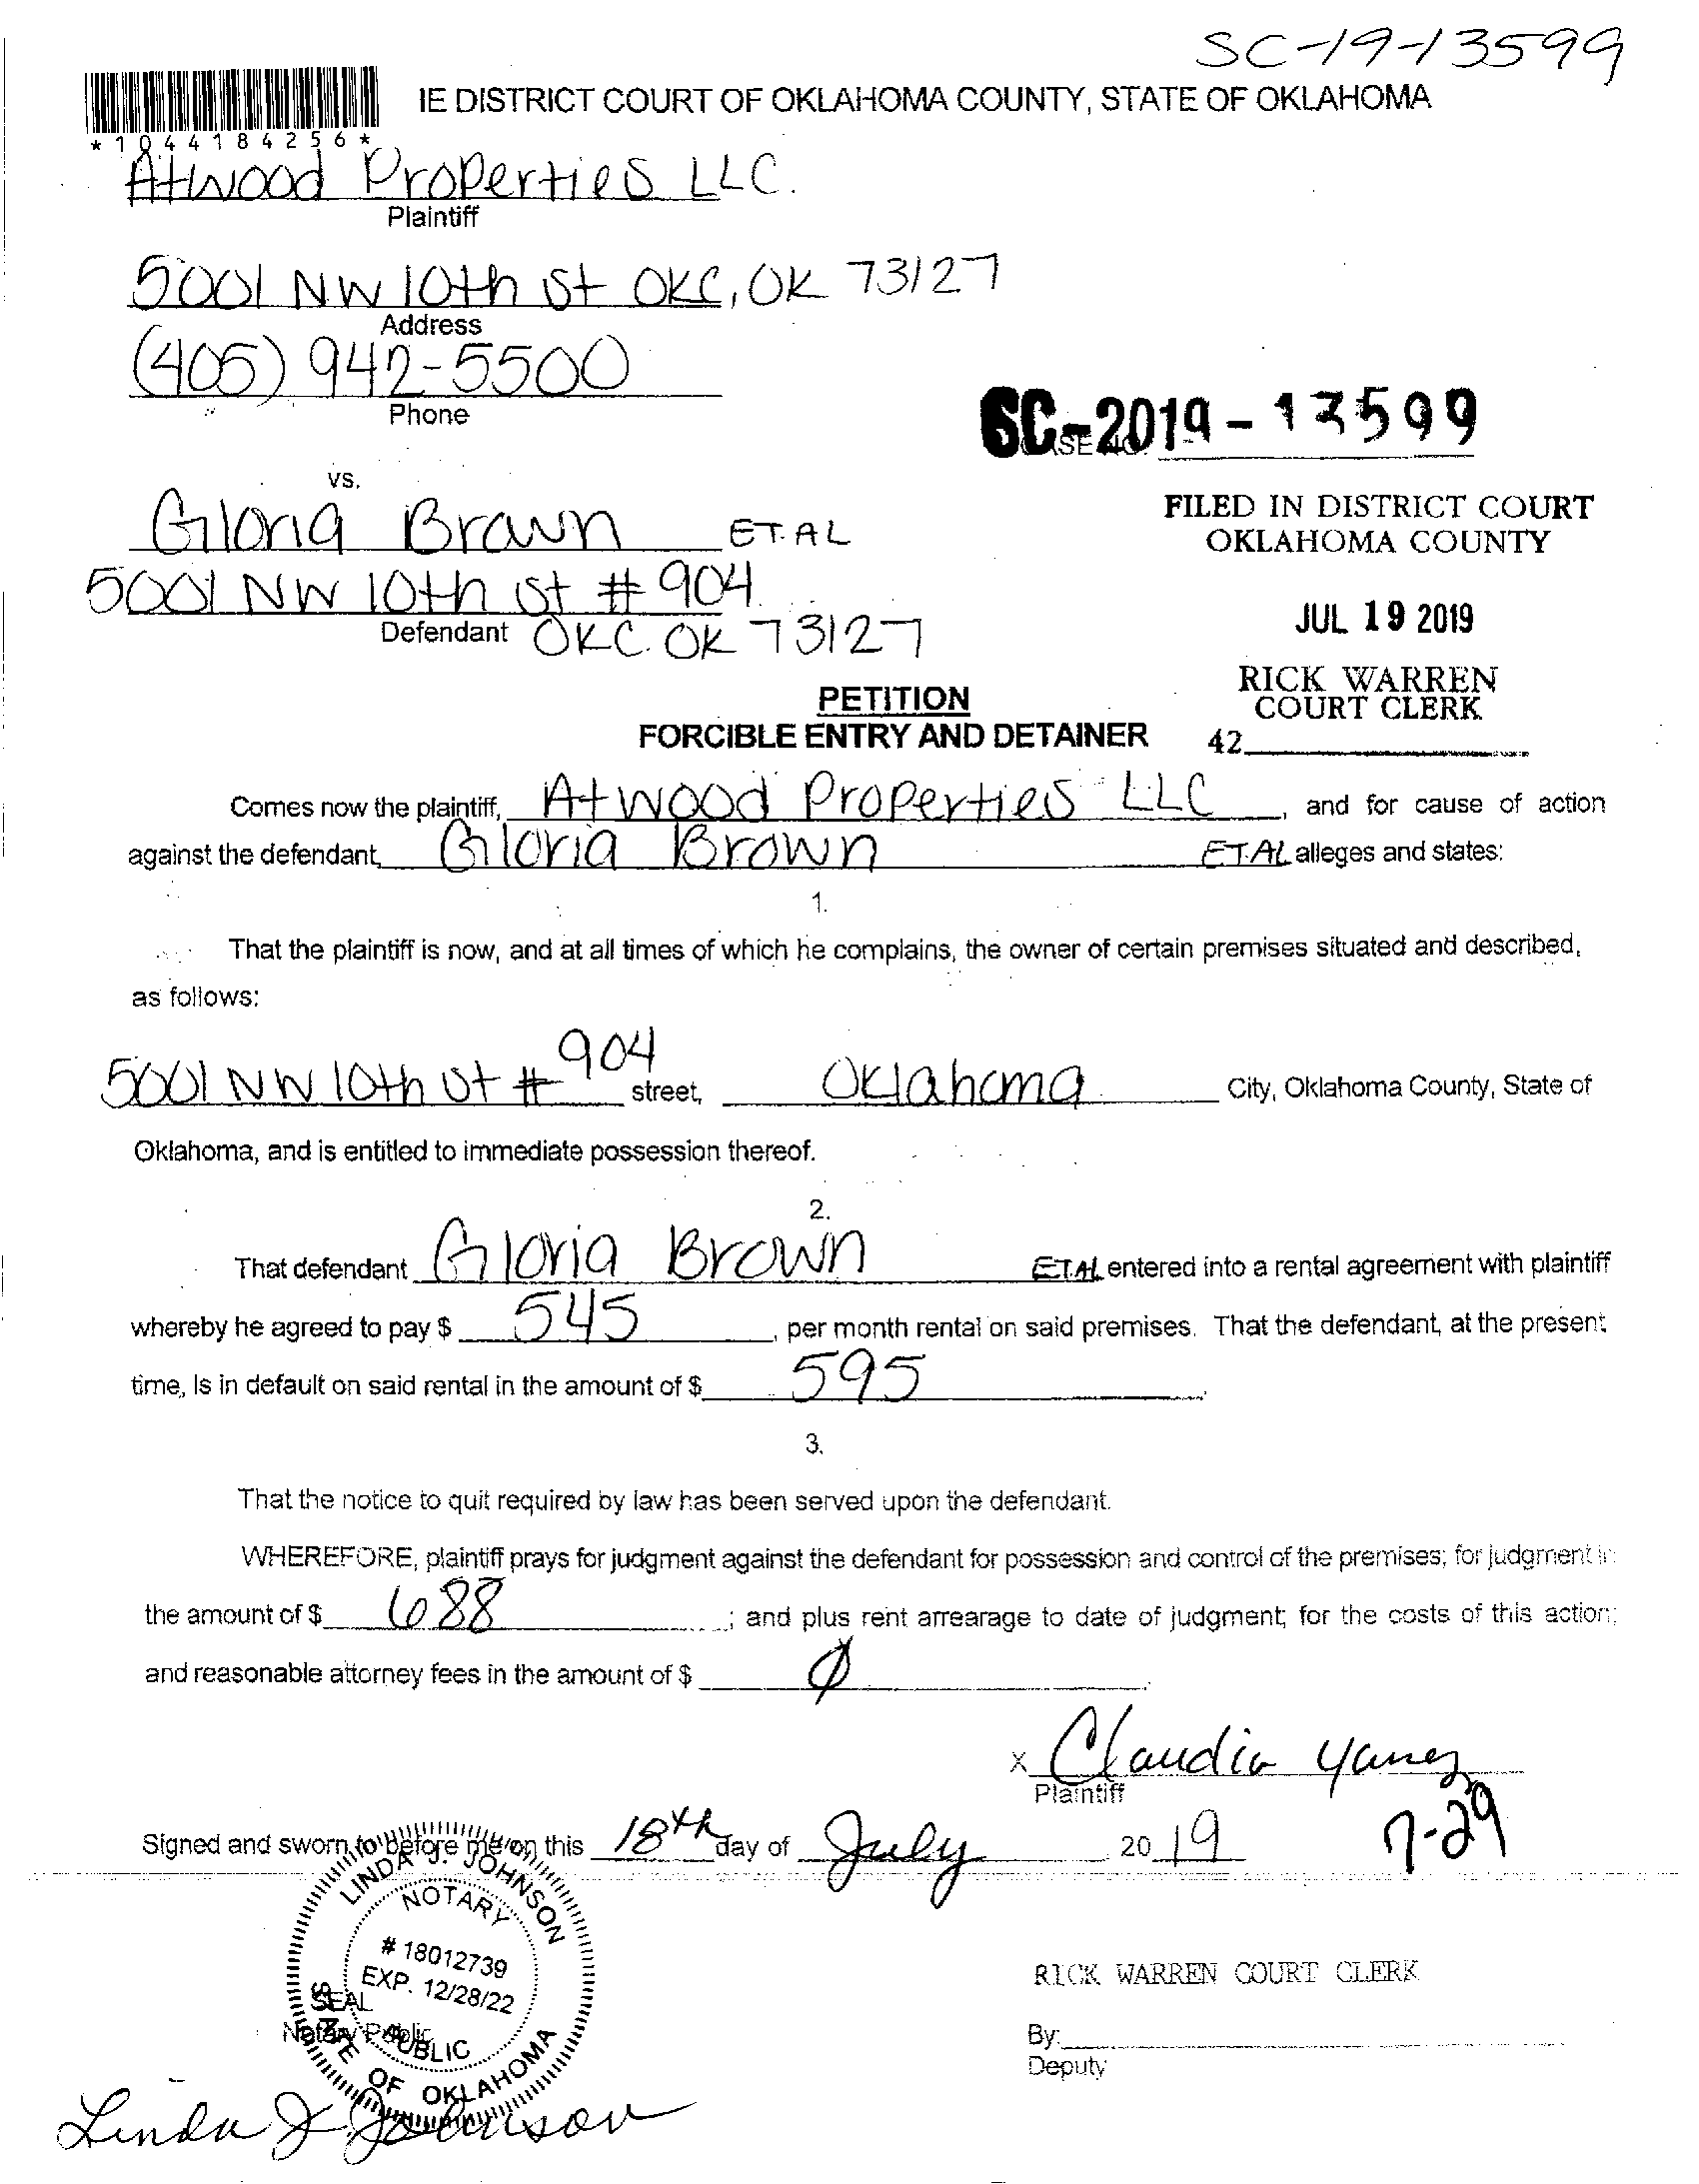 SC-19-13599
IE DISTRICT COURT OF OKLAHOMA COUNTY, STATE OF OKLAHOMA
*1044184256*
Atwood Properties LLC.
Plaintiff
5001 NW 10th St OKC, OK 73127
Address
(405) 942-5500
Phone
SC-2019-13599
vs.
FILED IN DISTRICT COURT
OKLAHOMA COUNTY
Gloria Brown ET.AL
5001 NW 10th St # 904
Defendant OKC. OK 73127
JUL 19 2019
RICK WARREN
COURT CLERK
42
PETITION
FORCIBLE ENTRY AND DETAINER
Comes now the plaintiff, Atwood Properties LLC, and for cause of action
against the defendant, Gloria Brown ET.AL alleges and states:
1.
That the plaintiff is now, and at all times of which he complains, the owner of certain premises situated and described,
as follows:
5001 NW 10th St # 904 street, Oklahoma City, Oklahoma County, State of
Oklahoma, and is entitled to immediate possession thereof.
2.
That defendant Gloria Brown ET.AL entered into a rental agreement with plaintiff
whereby he agreed to pay $ 545, per month rental on said premises. That the defendant, at the present
time, Is in default on said rental in the amount of $ 595.
3.
That the notice to quit required by law has been served upon the defendant.
WHEREFORE, plaintiff prays for judgment against the defendant for possession and control of the premises; for judgment in
the amount of $ 688; and plus rent arrearage to date of judgment; for the costs of this action;
and reasonable attorney fees in the amount of $ Ø.
X Claudia Yanez
Plaintiff
Signed and sworn to before me on this 18th day of July 2019
7-29
LINDA J. JOHNSON
NOTARY
# 18012739
EXP. 12/28/22
PUBLIC
STATE OF OKLAHOMA
SEAL
Notary Public
Linda J. Johnson
RICK WARREN COURT CLERK
By:
Deputy